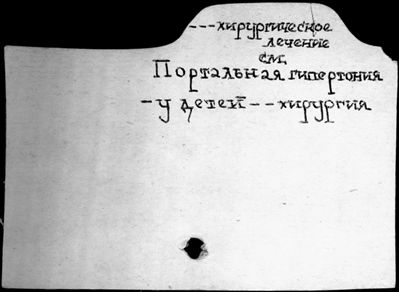 ---хирургическое
лечение
см.
Портальная гипертония
-у детей--хирургия